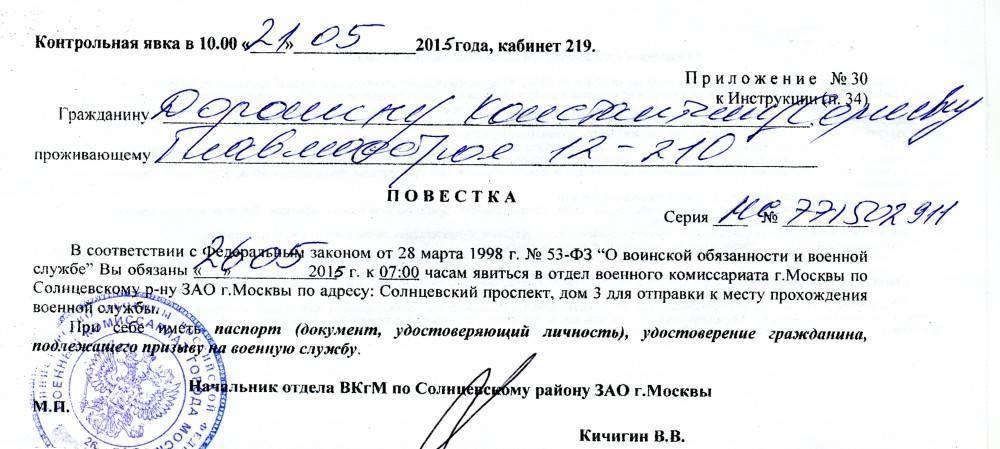 Контрольная явка в 10.00 «21» 05 2015 года, кабинет 219.
Приложение № 30
к Инструкции (п. 34)
Гражданину Дорошину Константину Сергеевичу
проживающему Главмосстроя 12-210
ПОВЕСТКА
Серия МС № 771502911
В соответствии с Федеральным законом от 28 марта 1998 г. № 53-ФЗ “О воинской обязанности и военной
службе” Вы обязаны «26» 05 2015 г. к 07:00 часам явиться в отдел военного комиссариата г.Москвы по
Солнцевскому р-ну ЗАО г.Москвы по адресу: Солнцевский проспект, дом 3 для отправки к месту прохождения
военной службы.
При себе иметь паспорт (документ, удостоверяющий личность), удостоверение гражданина,
подлежащего призыву на военную службу.
Начальник отдела ВКгМ по Солнцевскому району ЗАО г.Москвы
М.П.
Кичигин В.В.